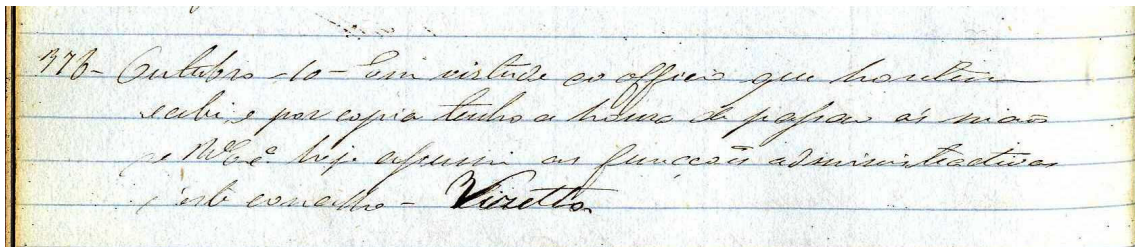 376 - Outubro - 10 - Em virtude do officio que hontem
recebi, e por copia tenho a honra de passar ás mãos
de V. Ex.ª hoje assumi as funcções administractivas
d'este concelho -